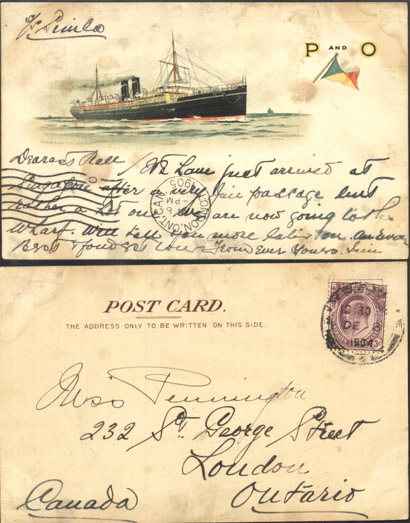 P AND O
Dearest Nell / We have just arrived at
Singapore after a very fine passage but
rather a hot one. We are now going to the
wharf. Will tell you more later on.
Best & fondest love - From Ever Yours.
LONDON, ONT. CANADA
PM
1905
POST CARD.
THE ADDRESS ONLY TO BE WRITTEN ON THIS SIDE.
DE
1904
Miss Pennington
232 St. George Street
London
Ontario
Canada